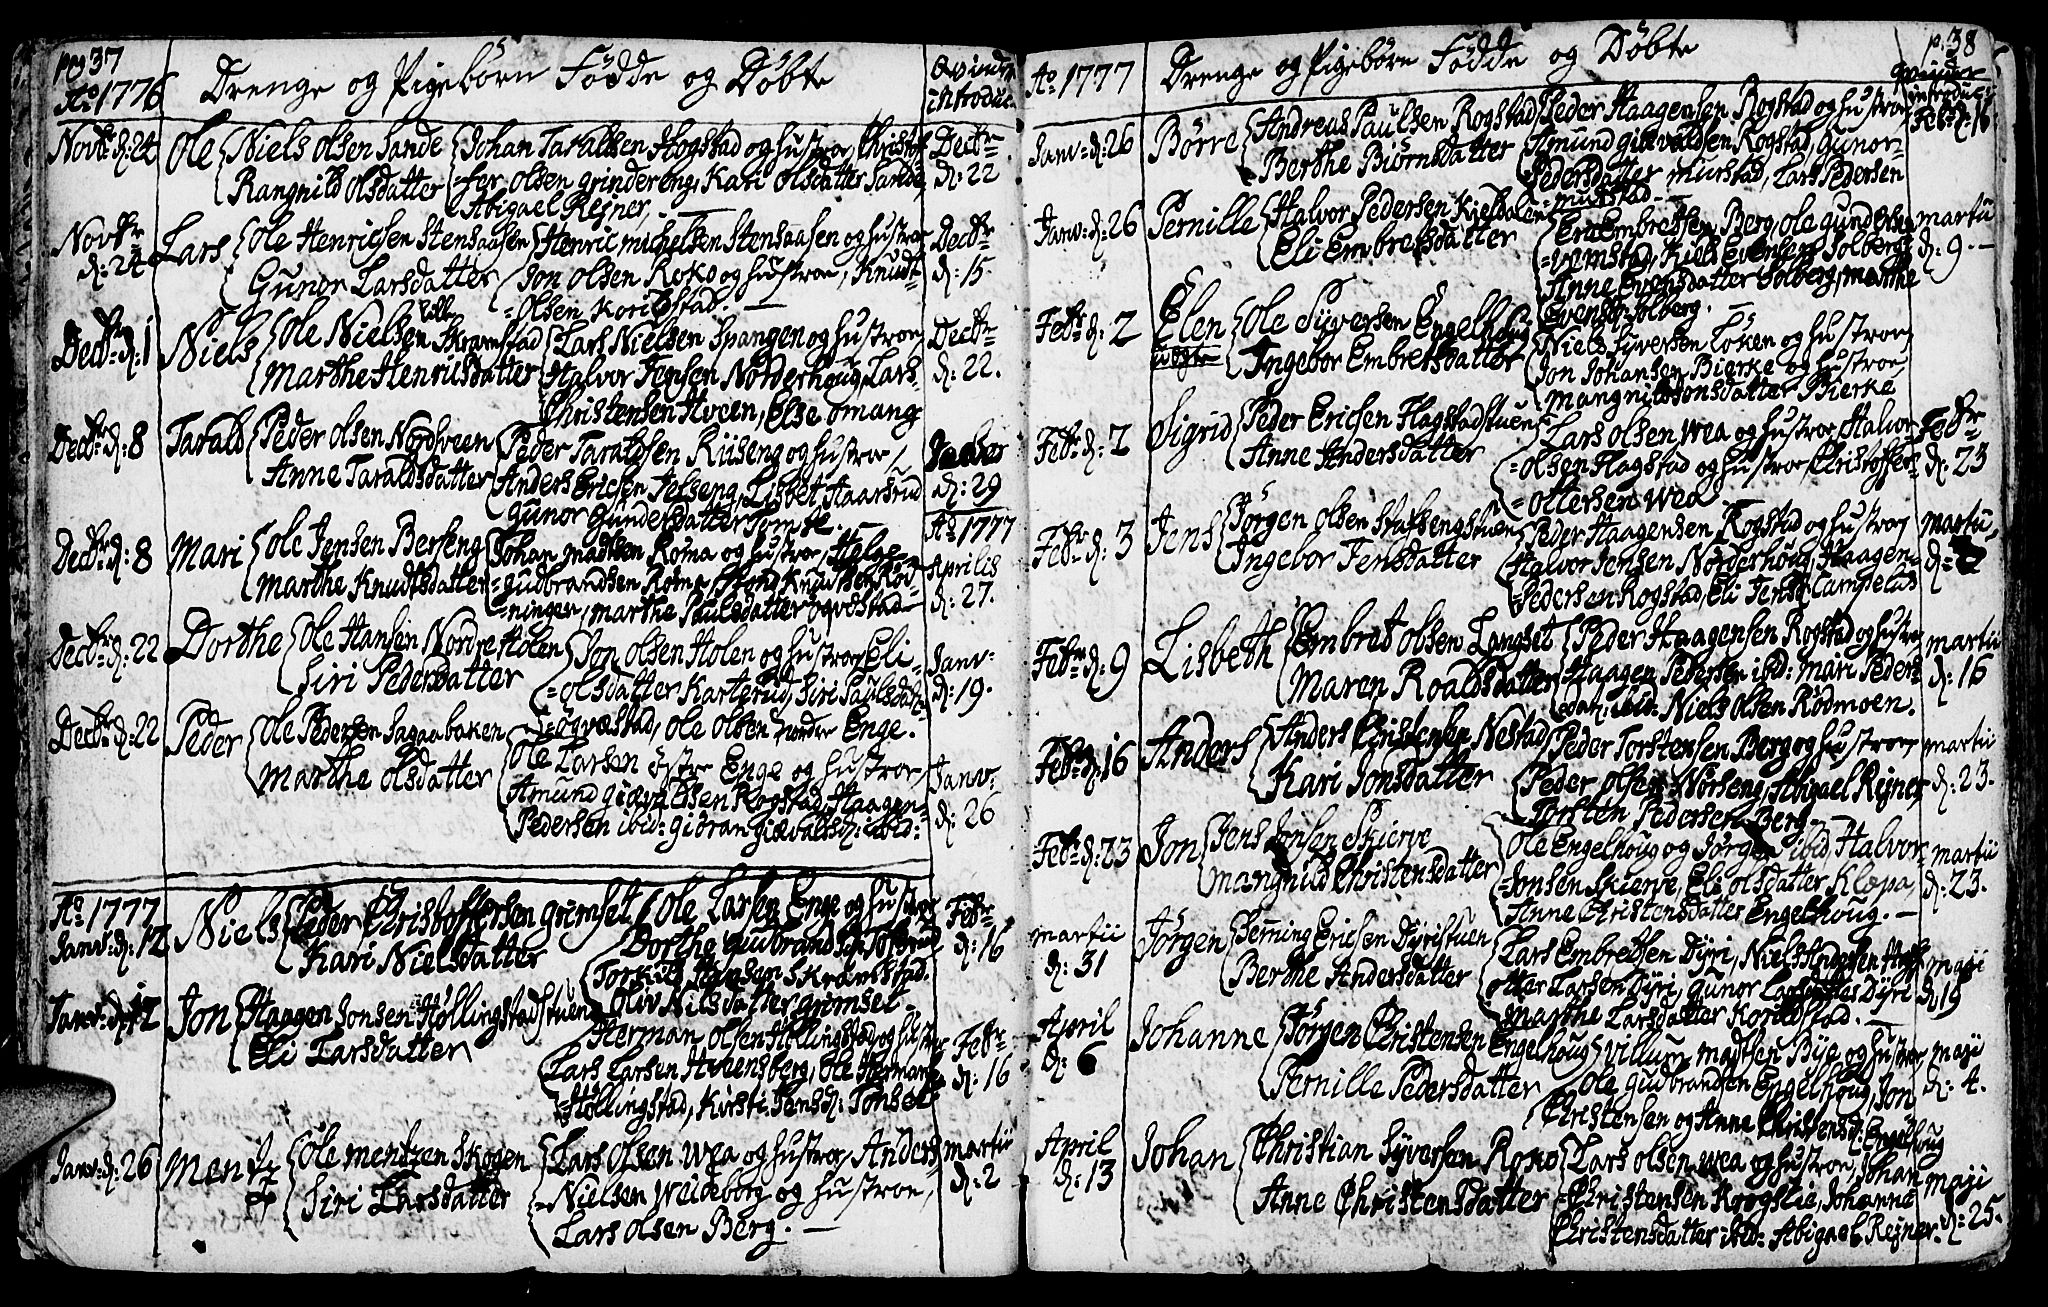 pag 37
Ao 1776 Drenge og Pigebørn Fødde og Døbte
introduc:
Novbr: d: 24 Ole Niels Olsen Sande
Rangnild Olsdatter
Johan Taraldsen Hogstad og hustroe, Christof
=fer Olsen Grindereng, Kari Olsdatter Sande,
Abigael Rejner,
Decbr
d: 22
Novbr
d: 24 Lars Ole Henricsen Stensaasen
Gunor Larsdatter
Henric Michelsen Stensaasen og hustroe
Jon Olsen Roko og hustroe, Knudt
=Olsen
Decbr
d: 15.
Decbr d: 1 Niels Ole Nielsen Skramstad
Marthe Henricsdatter
Lars Nielsen Spangen og hustroe,
Halvor Jensen Norderhoug, Lars
Christensen Hveen, Else Omang
Decbr
d: 22.
Decbr d: 8 Tarald Peder Olsen Nordsveen
Anne Taraldsdatter
Peder Taraldsen Riiseng og hustroe,
Anders Ericsen Jelseng, Lisbet Haarsrud
Gunor Gundersdatter Tomte.
d: 29
Decbr d: 8 Mari Ole Jensen Berseng
Marthe Knudtsdatter
Johan Madtsen Roma og hustroe, Helge
=Gudbrandsen Roma, Jon Knudtsen Rød
=ningen, Marthe Paulsdatter Ogvestad
Ao 1777
Aprilis
d: 27.
Decbr d: 22 Dorthe Ole Hansen Nordre Holen
Siri Pedersdatter
Jon Olsen Holen og hustroe, Eli
=Olsdatter Karterud, Siri Paulsdatr
=Ogvestad, Ole Olsen nordre Enge.
Janv:
d: 19.
Decbr d: 22 Peder Ole Pedersen Sagaabaken
Marthe Olsdatter
Ole Larsen østre Enge og hustroe,
Amund Giævaldsen Rogstad, Haagen
Pedersen ibid: Giøran Giævaldsd: ibid:
Janv:
d: 26
Ao 1777
Janv: d: 12 Niels Peder Christoffersen Grimset
Kari Nielsdatter
Ole Larsen Enge og hustroe
Dorthe Gudbrandsd:
Torkild Hansen Skramstad.
Oliv Nilsdatter Grimset
Febr
d: 16
Janv: d: 12 Jon Haagen Jonsen Høllingstadstuen
Eli Larsdatter
Herman Olsen Høllingstad og hustroe
Lars Larsen Hveensberg, Ole Herman
=Høllingstad, Kirsti Jensd: Tonset
Febr
d: 16
Janv: d: 26 Mentz Ole Mentzen Skogen
Siri Larsdatter
Lars Olsen Wea og hustroe, Anders
=Nielsen Weideborg og hustroe,
Lars Olsen Berg.
Martii
d: 2
p: 38
Ao 1777 Drenge og Pigebørn Fødde og Døbte
Qvinder
introduc:
Janv: d: 26 Børre Andreas Paulsen Rogstad
Berthe Biørnsdatter
Peder Haagensen Rogstad og hustroe,
Amund Giævaldsen Rogstad, Gunor
Pedersdatter Murstad, Lars Pedersen
=Murstad
Febr d: 16
Janv: d: 26 Pernille Halvor Pedersen Kielsdalen
Eli Embretsdatter
Eric Embretsen Berg, Ole Gundersen
=Vamstad, Kield Evensen Solberg
Anne Evensdatter Solberg, Marthe
Evensd: Solberg.
Martii
d: 9.
Febr d: 2 Elen
uægte
Ole Syversen Engelhoug
Ingebor Embretsdatter
Niels Syversen Løken og hustroe,
Jon Johansen Bierke og hustroe,
Mangnild Jonsdatter Bierke
Febr d: 2 Sigrid Peder Ericsen Flagstadstuen
Anne Andersdatter
Lars Olsen Wea og hustroe, Halvor
=Olsen Flagstad og hustroe, Christoffer
=Ottersen Wea
Febr
d: 23
Febr d: 3 Jens Jørgen Olsen Stafsengstuen
Ingebor Jensdatter
Peder Haagensen Rogstad og hustroe
Halvor Jensen Norderhoug, Haagen
=Pedersen Rogstad, Eli Jensd:
Martii
Febr d: 9 Lisbeth Embret Olsen Langset
Maren Roaldsdatter
Peder Haagensen Rogstad og hustroe
Haagen Pedersen ibid: Mari Peders
=datr: ibid: Niels Olsen Rødmoen.
Martii
d: 16
Febr d: 16 Anders Anders Christensen Nestad
Kari Jonsdatter
Peder Torstensen Berg og hustroe,
Peder Olsen Nørseng, Abigael Rejner
Torsten Pedersen Berg
Martii
d: 23.
Febr d: 23 Jon Jens Jonsen Skierve
Mangnild Christensdatter
Ole Engelhoug og Jørgen ibid, Halvor
=Jonsen Skierve, Eli Olsdatter Klæpa,
Anne Christensdatter Engelhoug.
Martii
d: 23.
Martii
d: 31 Jørgen Berning Ericsen Dyristuen
Berthe Andersdatter
Lars Embretsen Dyri, Niels Andersen
Otter Larsen Dyri, Gunor Dyri
Marthe Larsdatter
Maji
d: 19
April
d: 6 Johanne Jørgen Christensen Engelhoug
Pernille Pedersdatter
Villum Madtsen Bye og hustroe,
Ole Gudbrandsen Engelhoug, Jon
Christensen og Anne Christensd: Engelhoug
Maji
d: 4.
April
d: 13 Johan Christian Syversen Roko
Anne Christensdatter
Lars Olsen Wea og hustroe, Johan
=Christensen Rogslie, Johanne
Christensdatter ibid: Abigael Rejner.
Maji
d: 25.